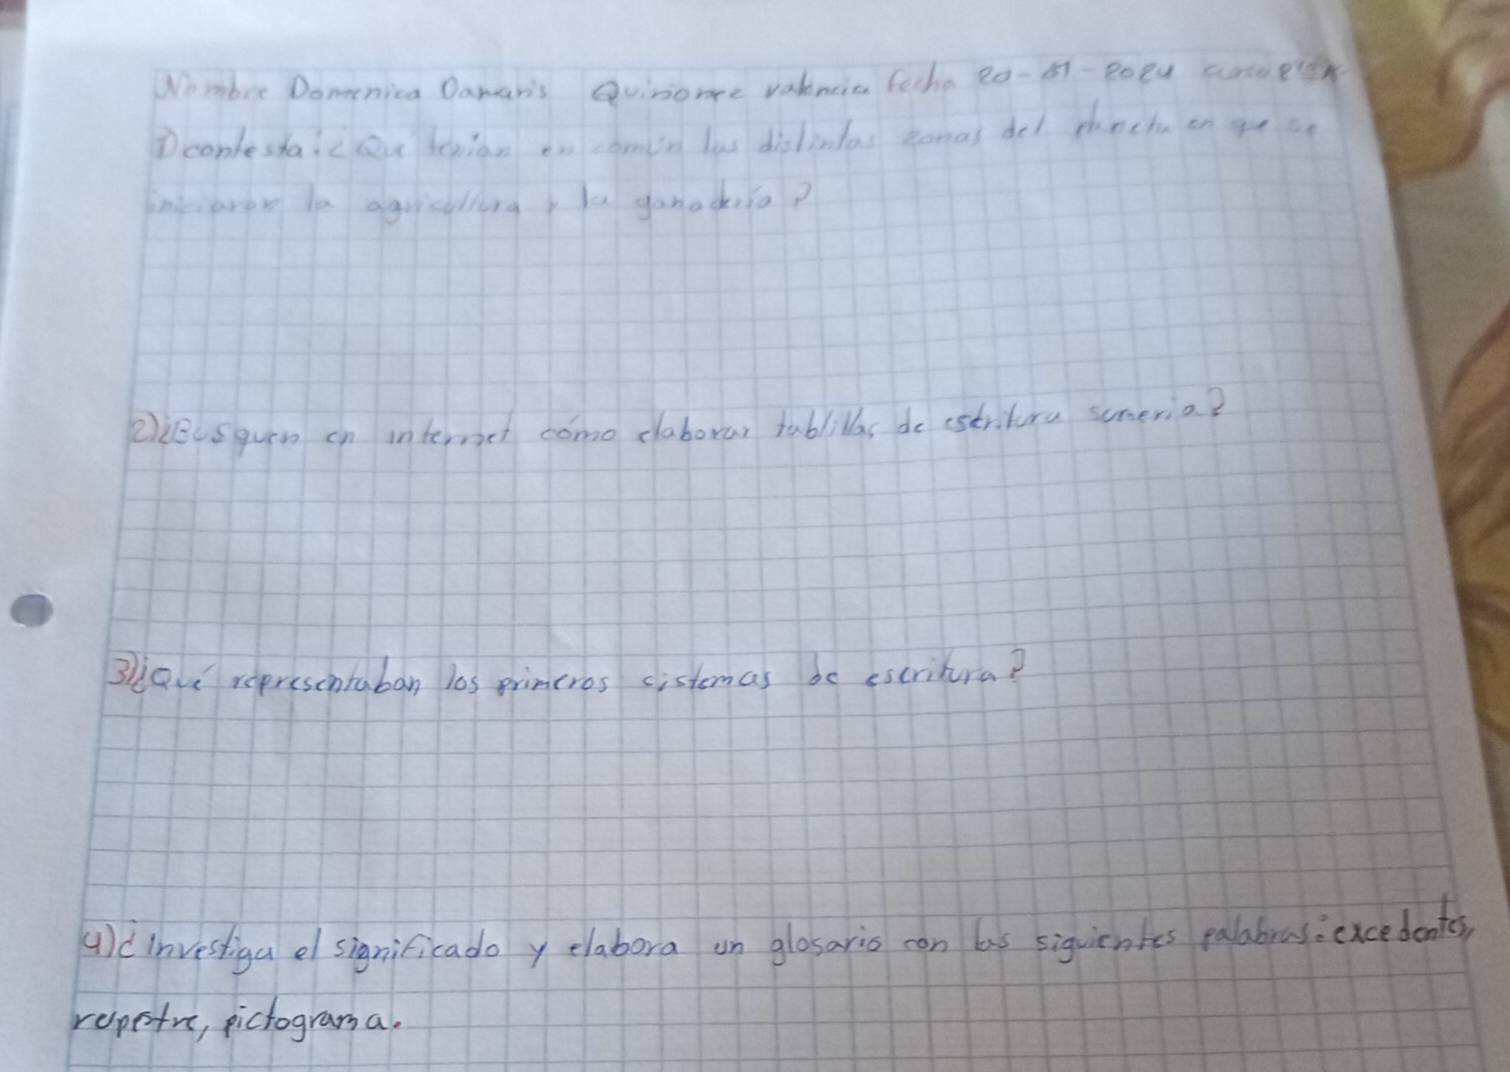 Nombre Domenica Damaris Quiñonez valencia fecha 20-01-2024 curso
1) contesta: ¿Que tenian en común las distintas zonas del planeta en que se
iniciaron la agricultura y la ganadería?
2) ¿Busquen en internet cómo elaborar tablillas de escritura sumeria?
3) ¿Qué representaban los primeros sistemas de escritura?
4) ¿investiga el significado y elabora un glosario con las siguientes palabras: excedentes,
rupestre, pictograma.